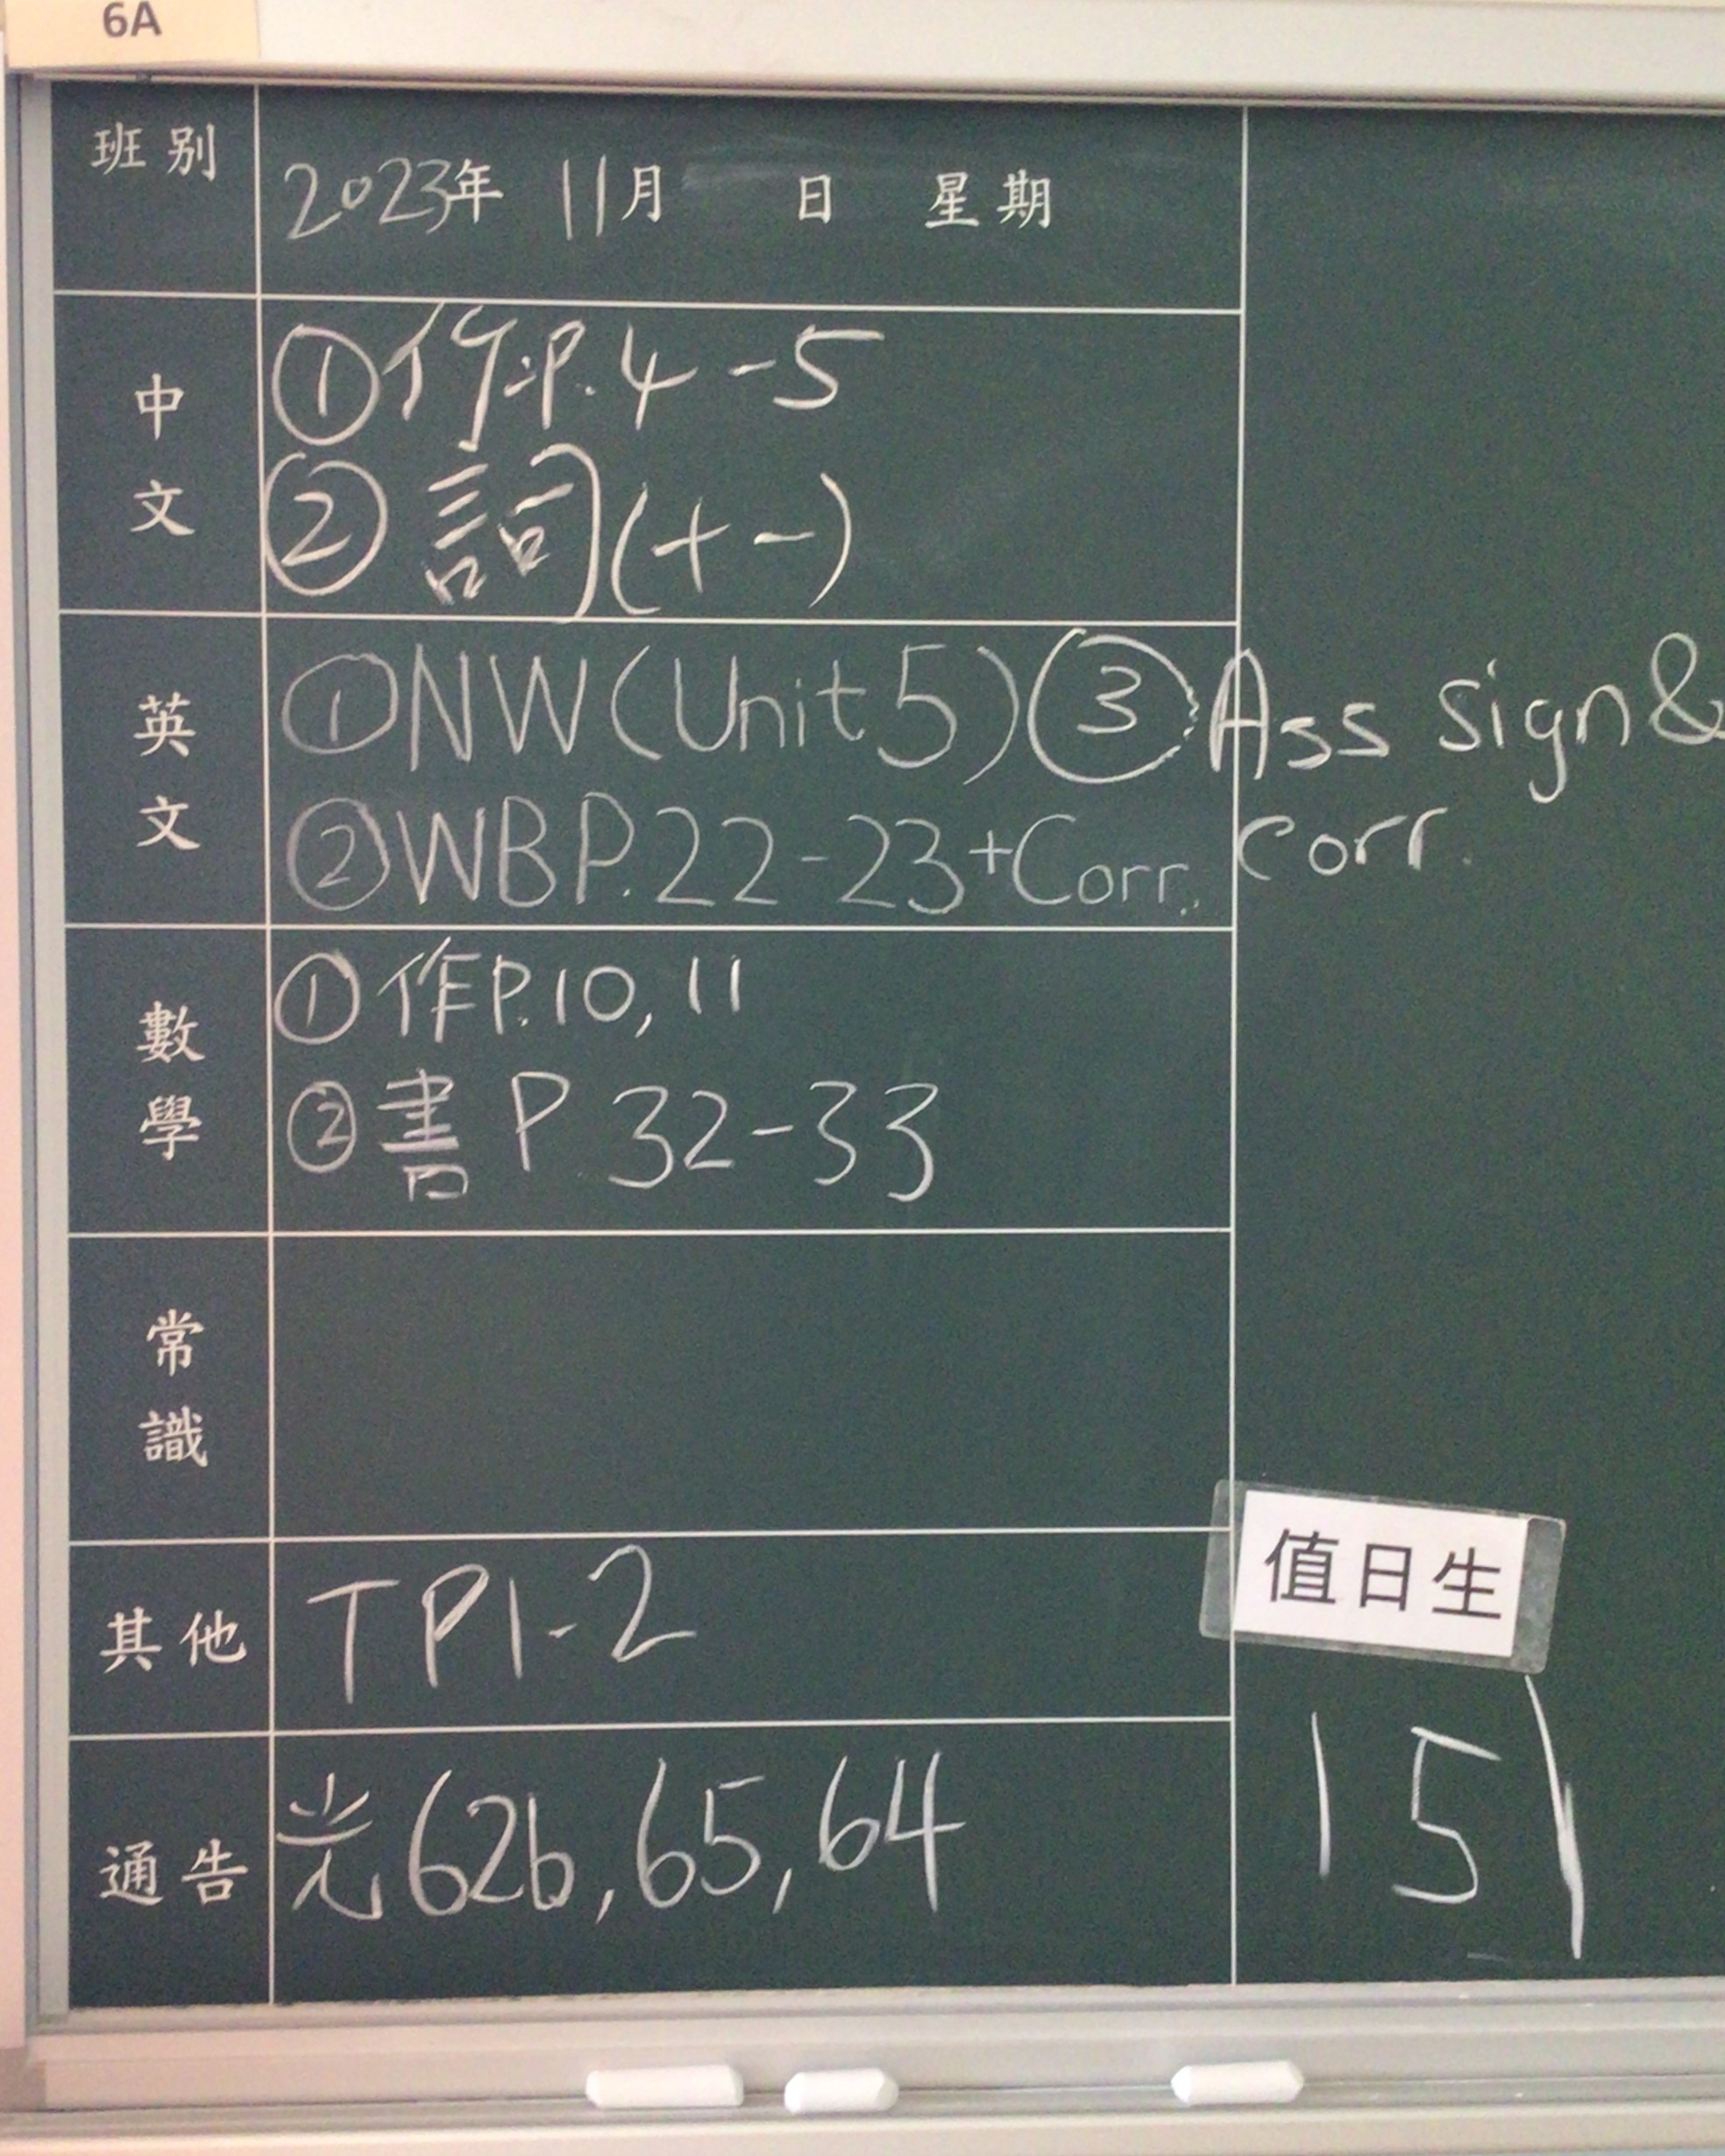 6A
班别
2023年 11月 日 星期
中文
①作P.4-5
②詞(十一)
英文
①NW(Unit 5)③Ass sign&
②WBP.22-23+Corr. corr.
數學
①作P.10,11
②書P 32-33
常識
其他
TP1-2
值日生
通告
光62b,65,64
1 5 1